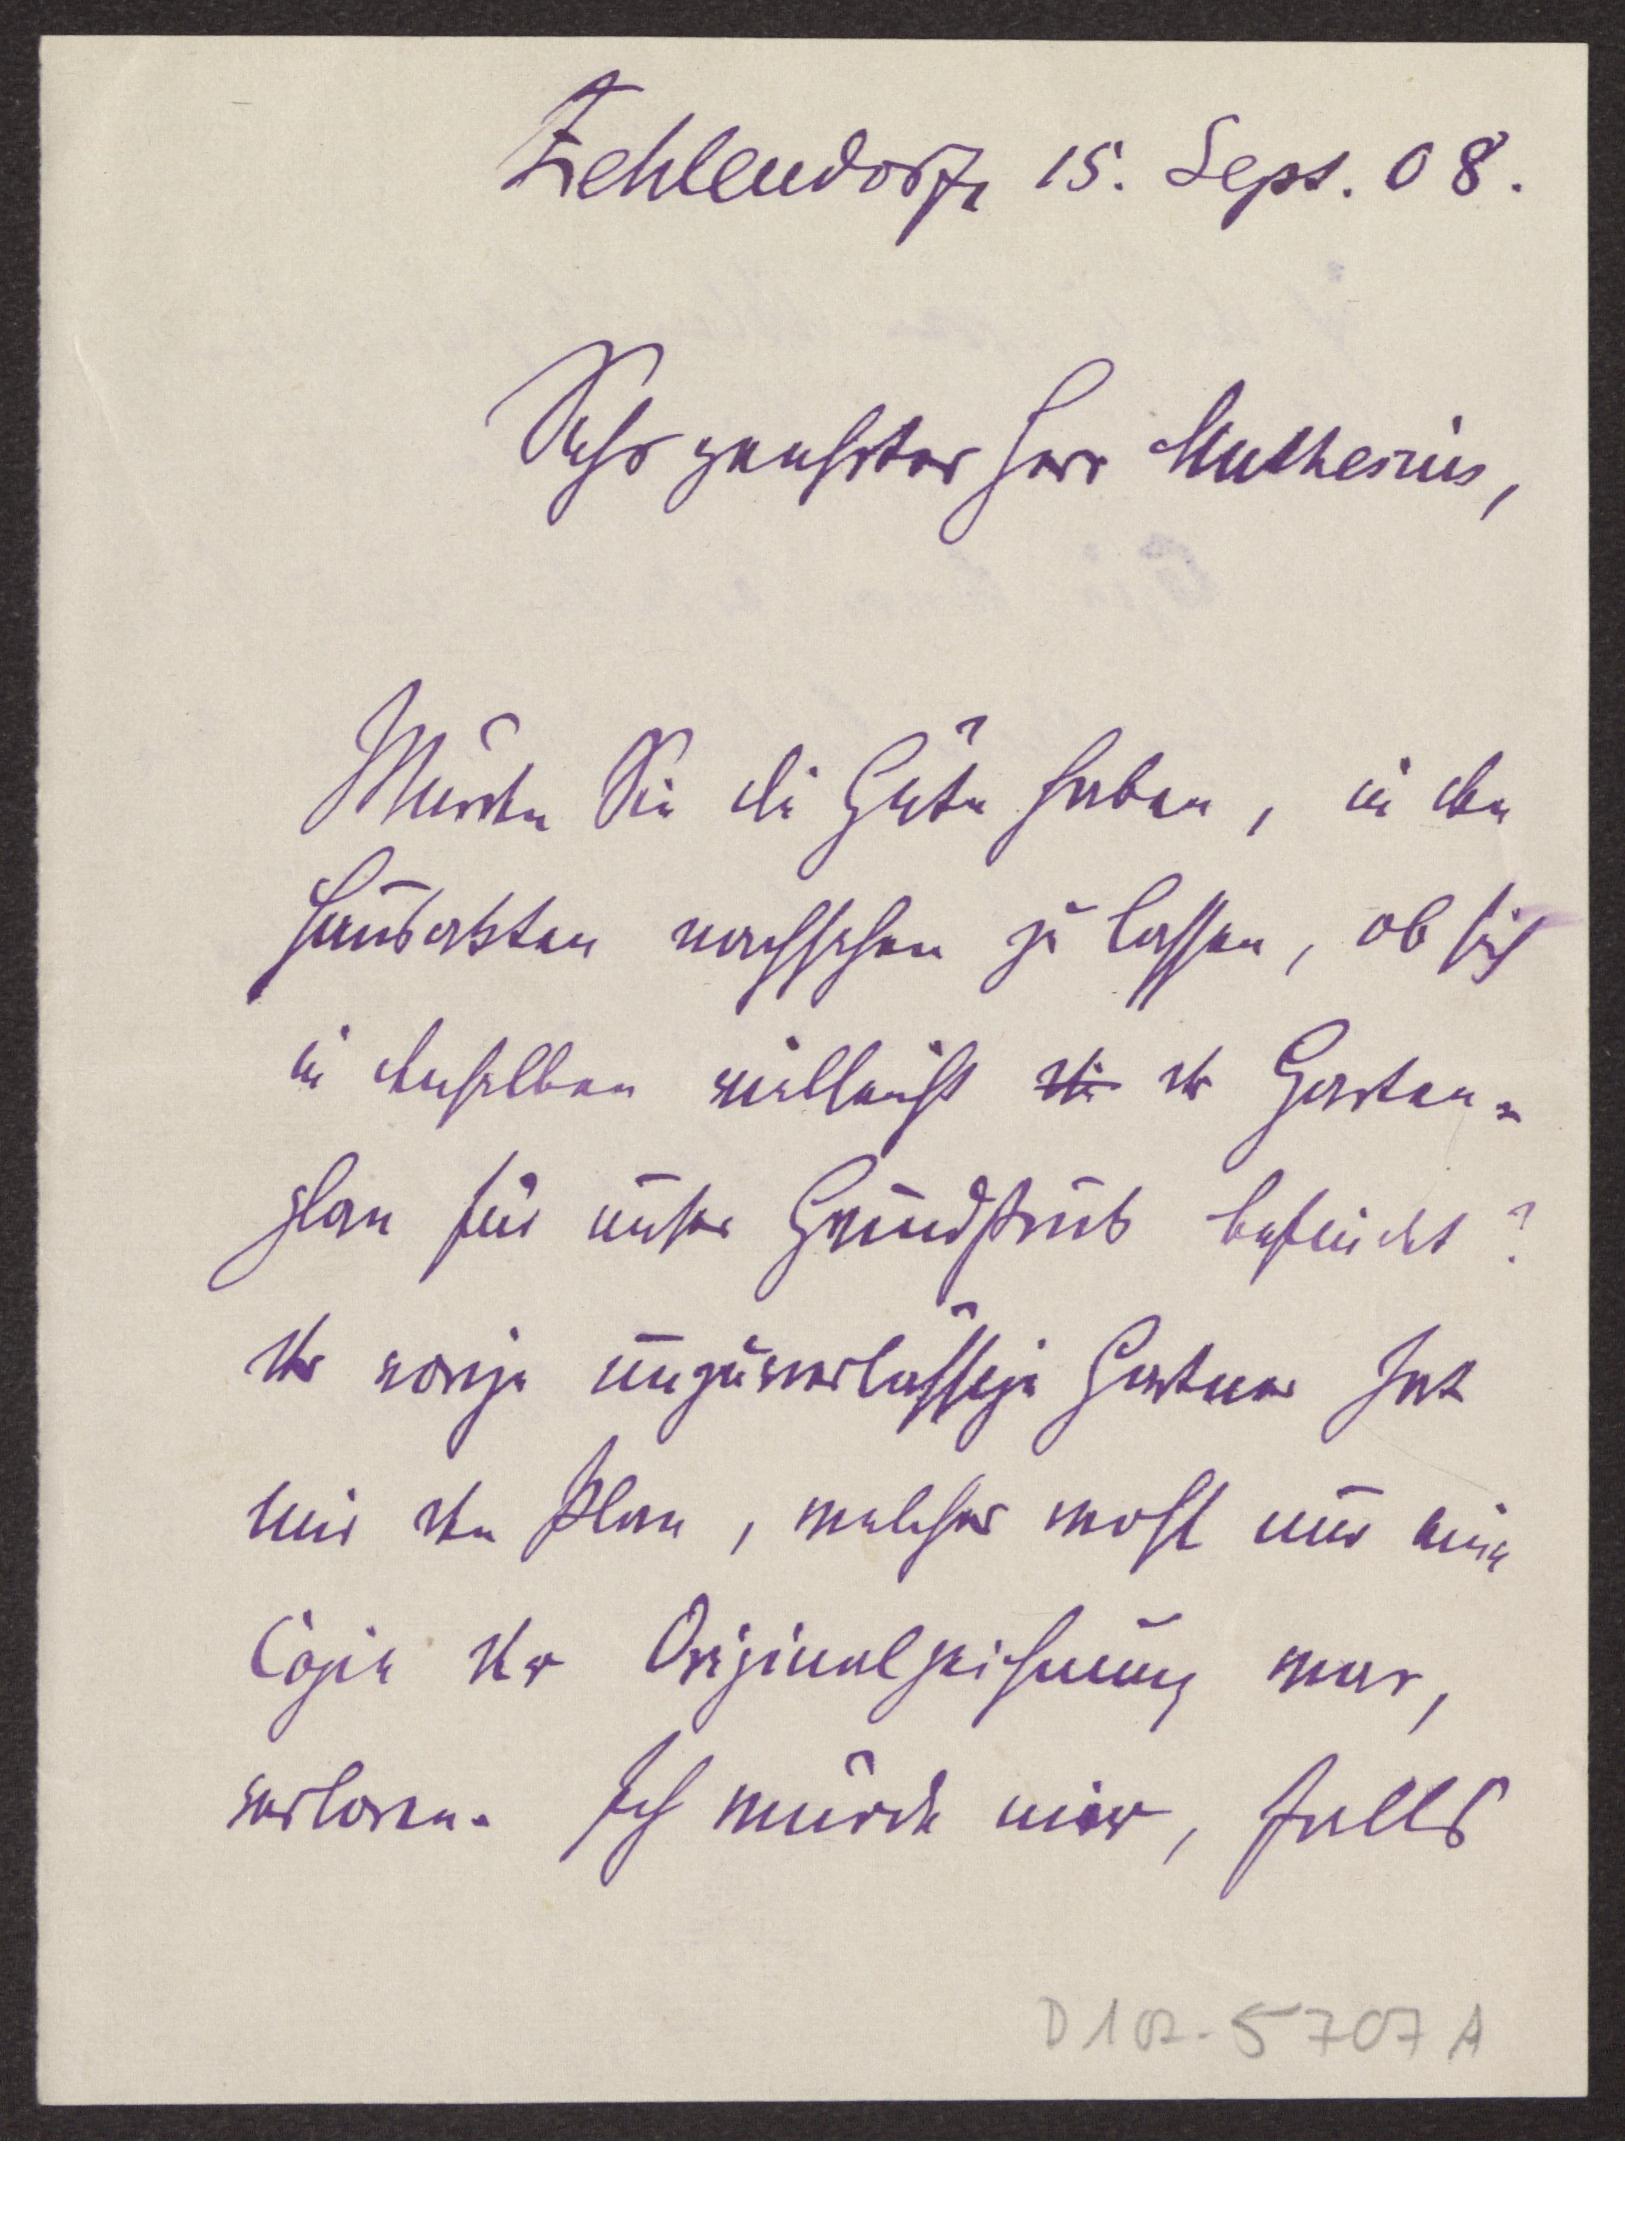 Zehlendorf, 15. Sept. 08.
Sehr geehrter Herr Muthesius,
Würden Sie die Güte haben, in den
Hausakten nachsehen zu lassen, ob sich
in denselben vielleicht die der Garten=
plan für unser Grundstück befindet?
Der vorige unzuverlässige Gärtner hat
mir den Plan, welcher wohl nur eine
Copie der Originalzeichnung war,
verloren. Ich würde mir, falls
D 102-5707 A